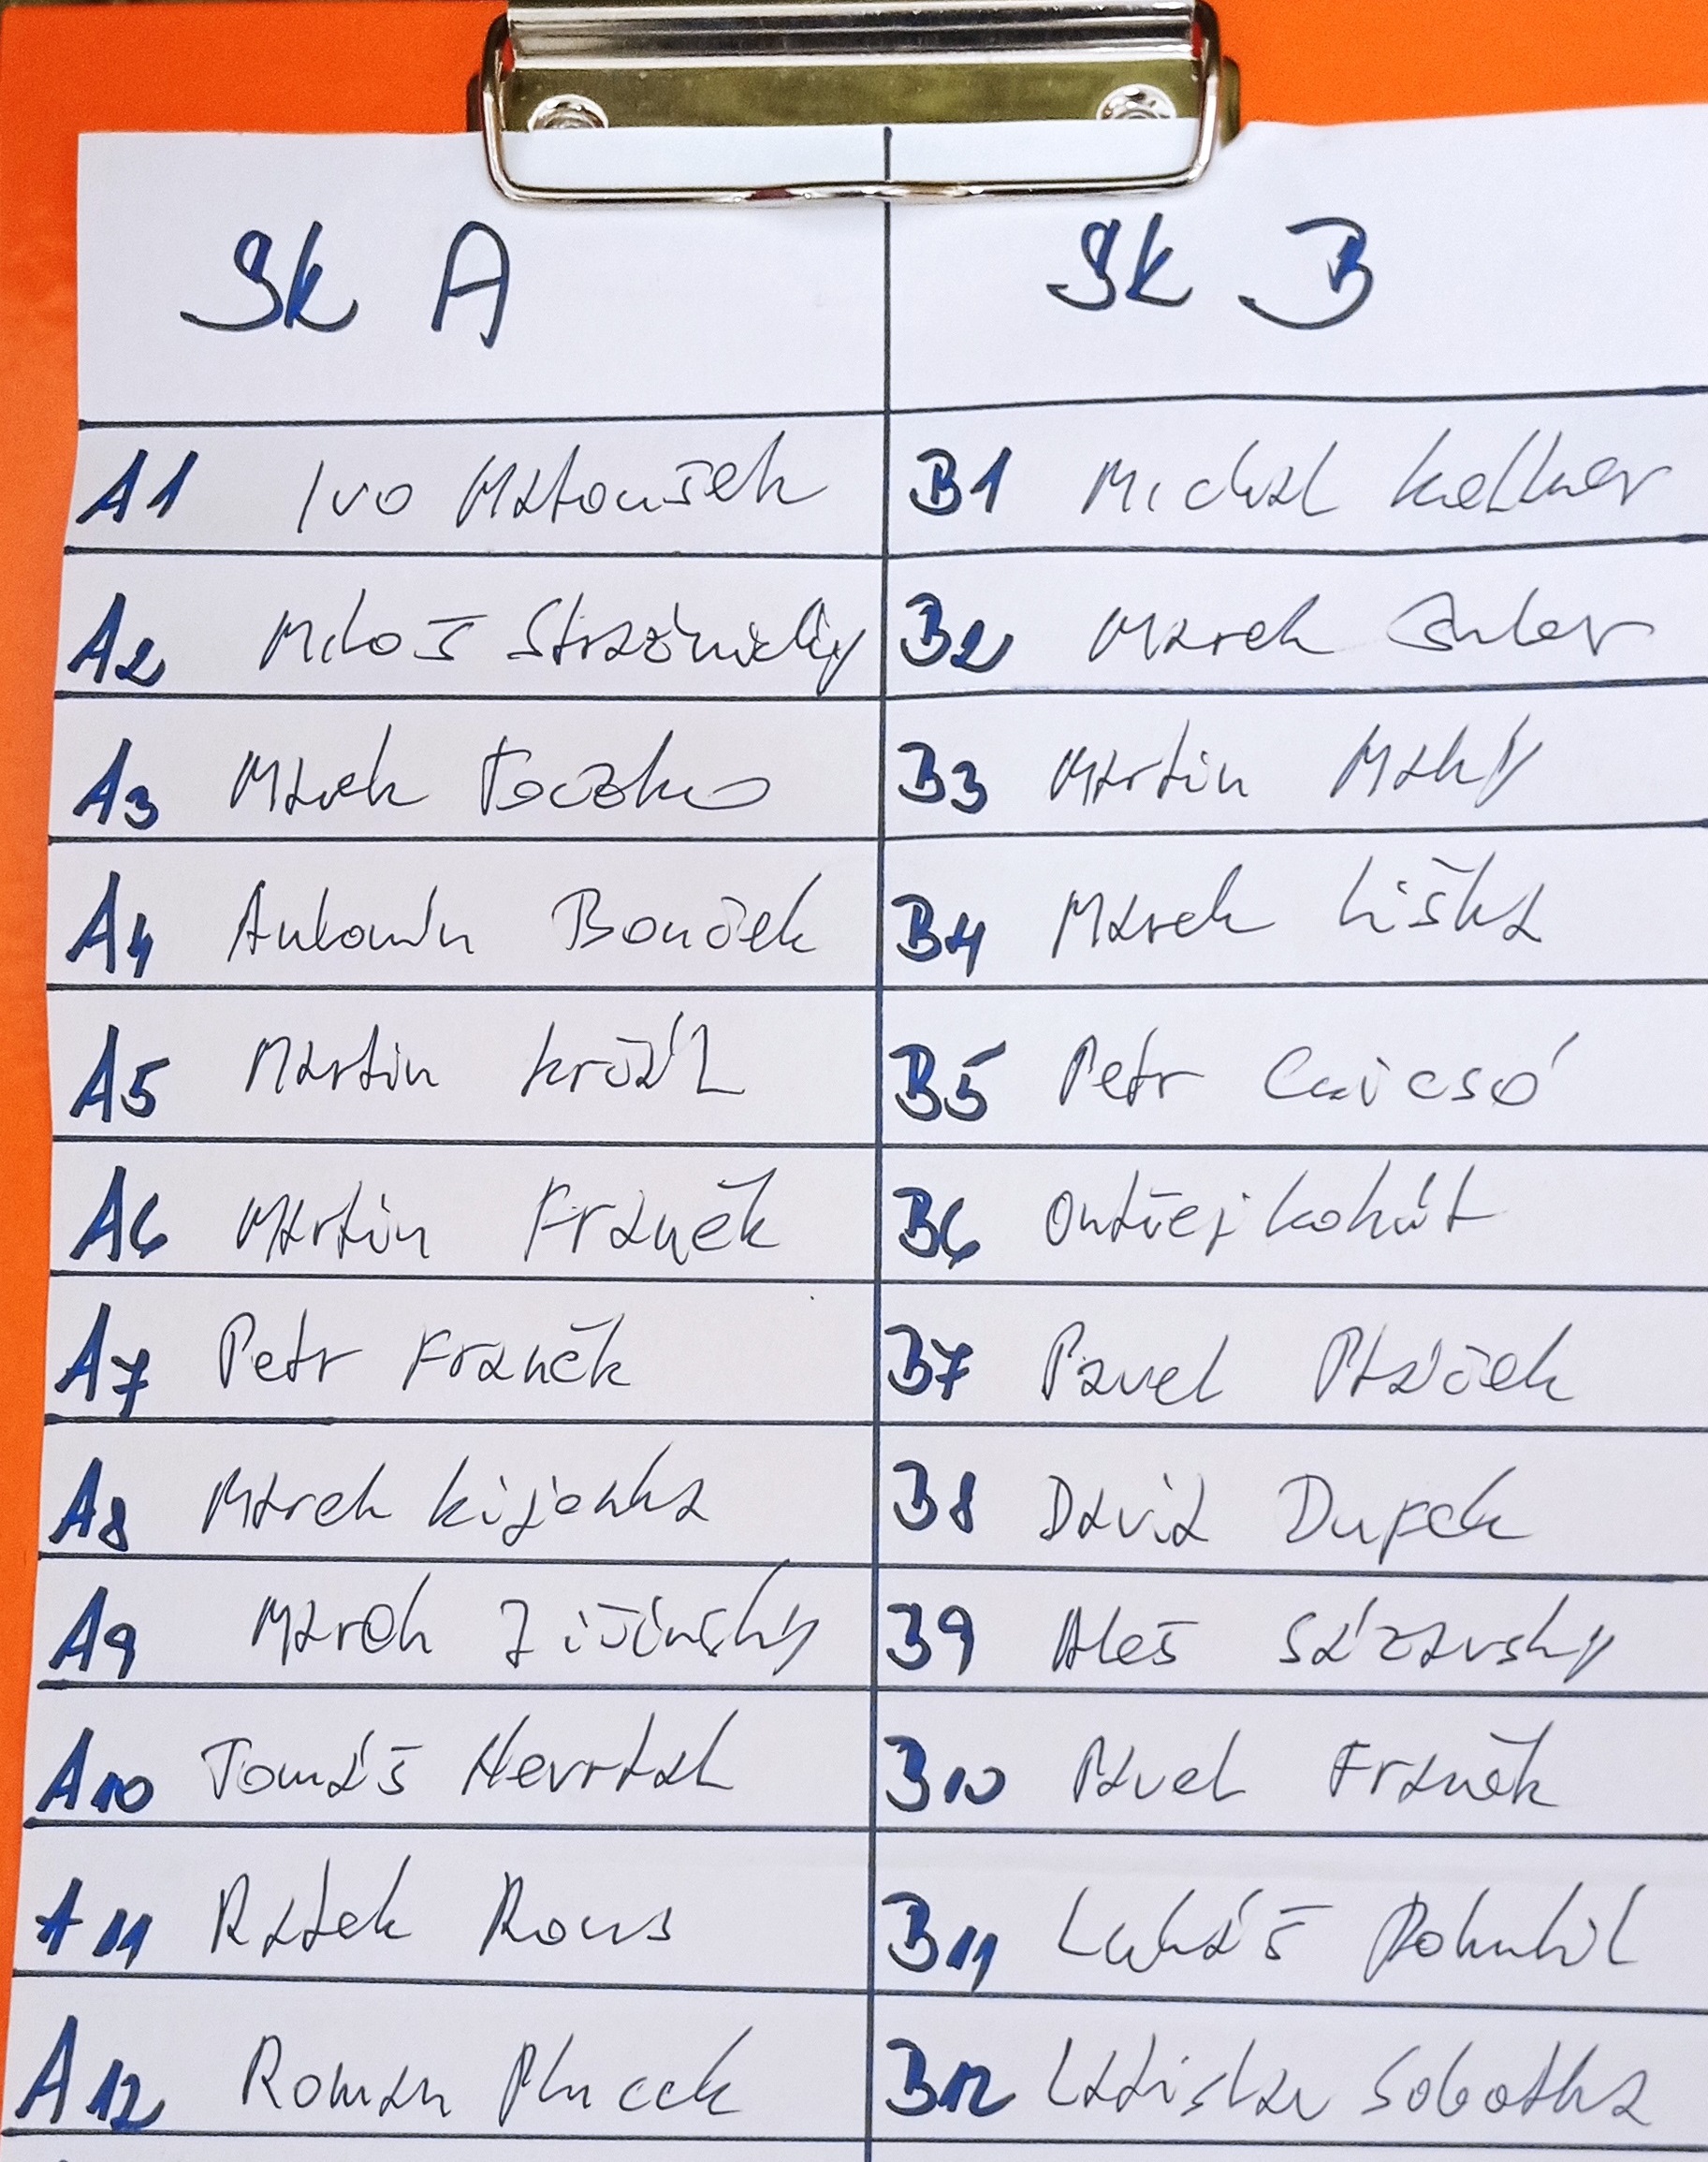 Sk A
Sk B
A1 Ivo Matoušek
B1 Michal Kellner
A2 Miloš Strážnický
B2 Marek
A3 Marek
B3 Martin Malý
A4 Antonín Bouček
B4 Marek Liška
A5 Martin
B5 Petr
A6 Martin Franěk
B6 Ondřej Kohút
A7 Petr Franěk
B7 Pavel Ptáček
A8 Marek Kijonka
B8 David Dupek
A9 Marek Jičínský
B9 Aleš Sázavský
A10 Tomáš Nevrtal
B10 Pavel Franěk
A11 Radek Rous
B11 Lukáš
A12 Roman Plucek
B12 Ladislav Sobotka